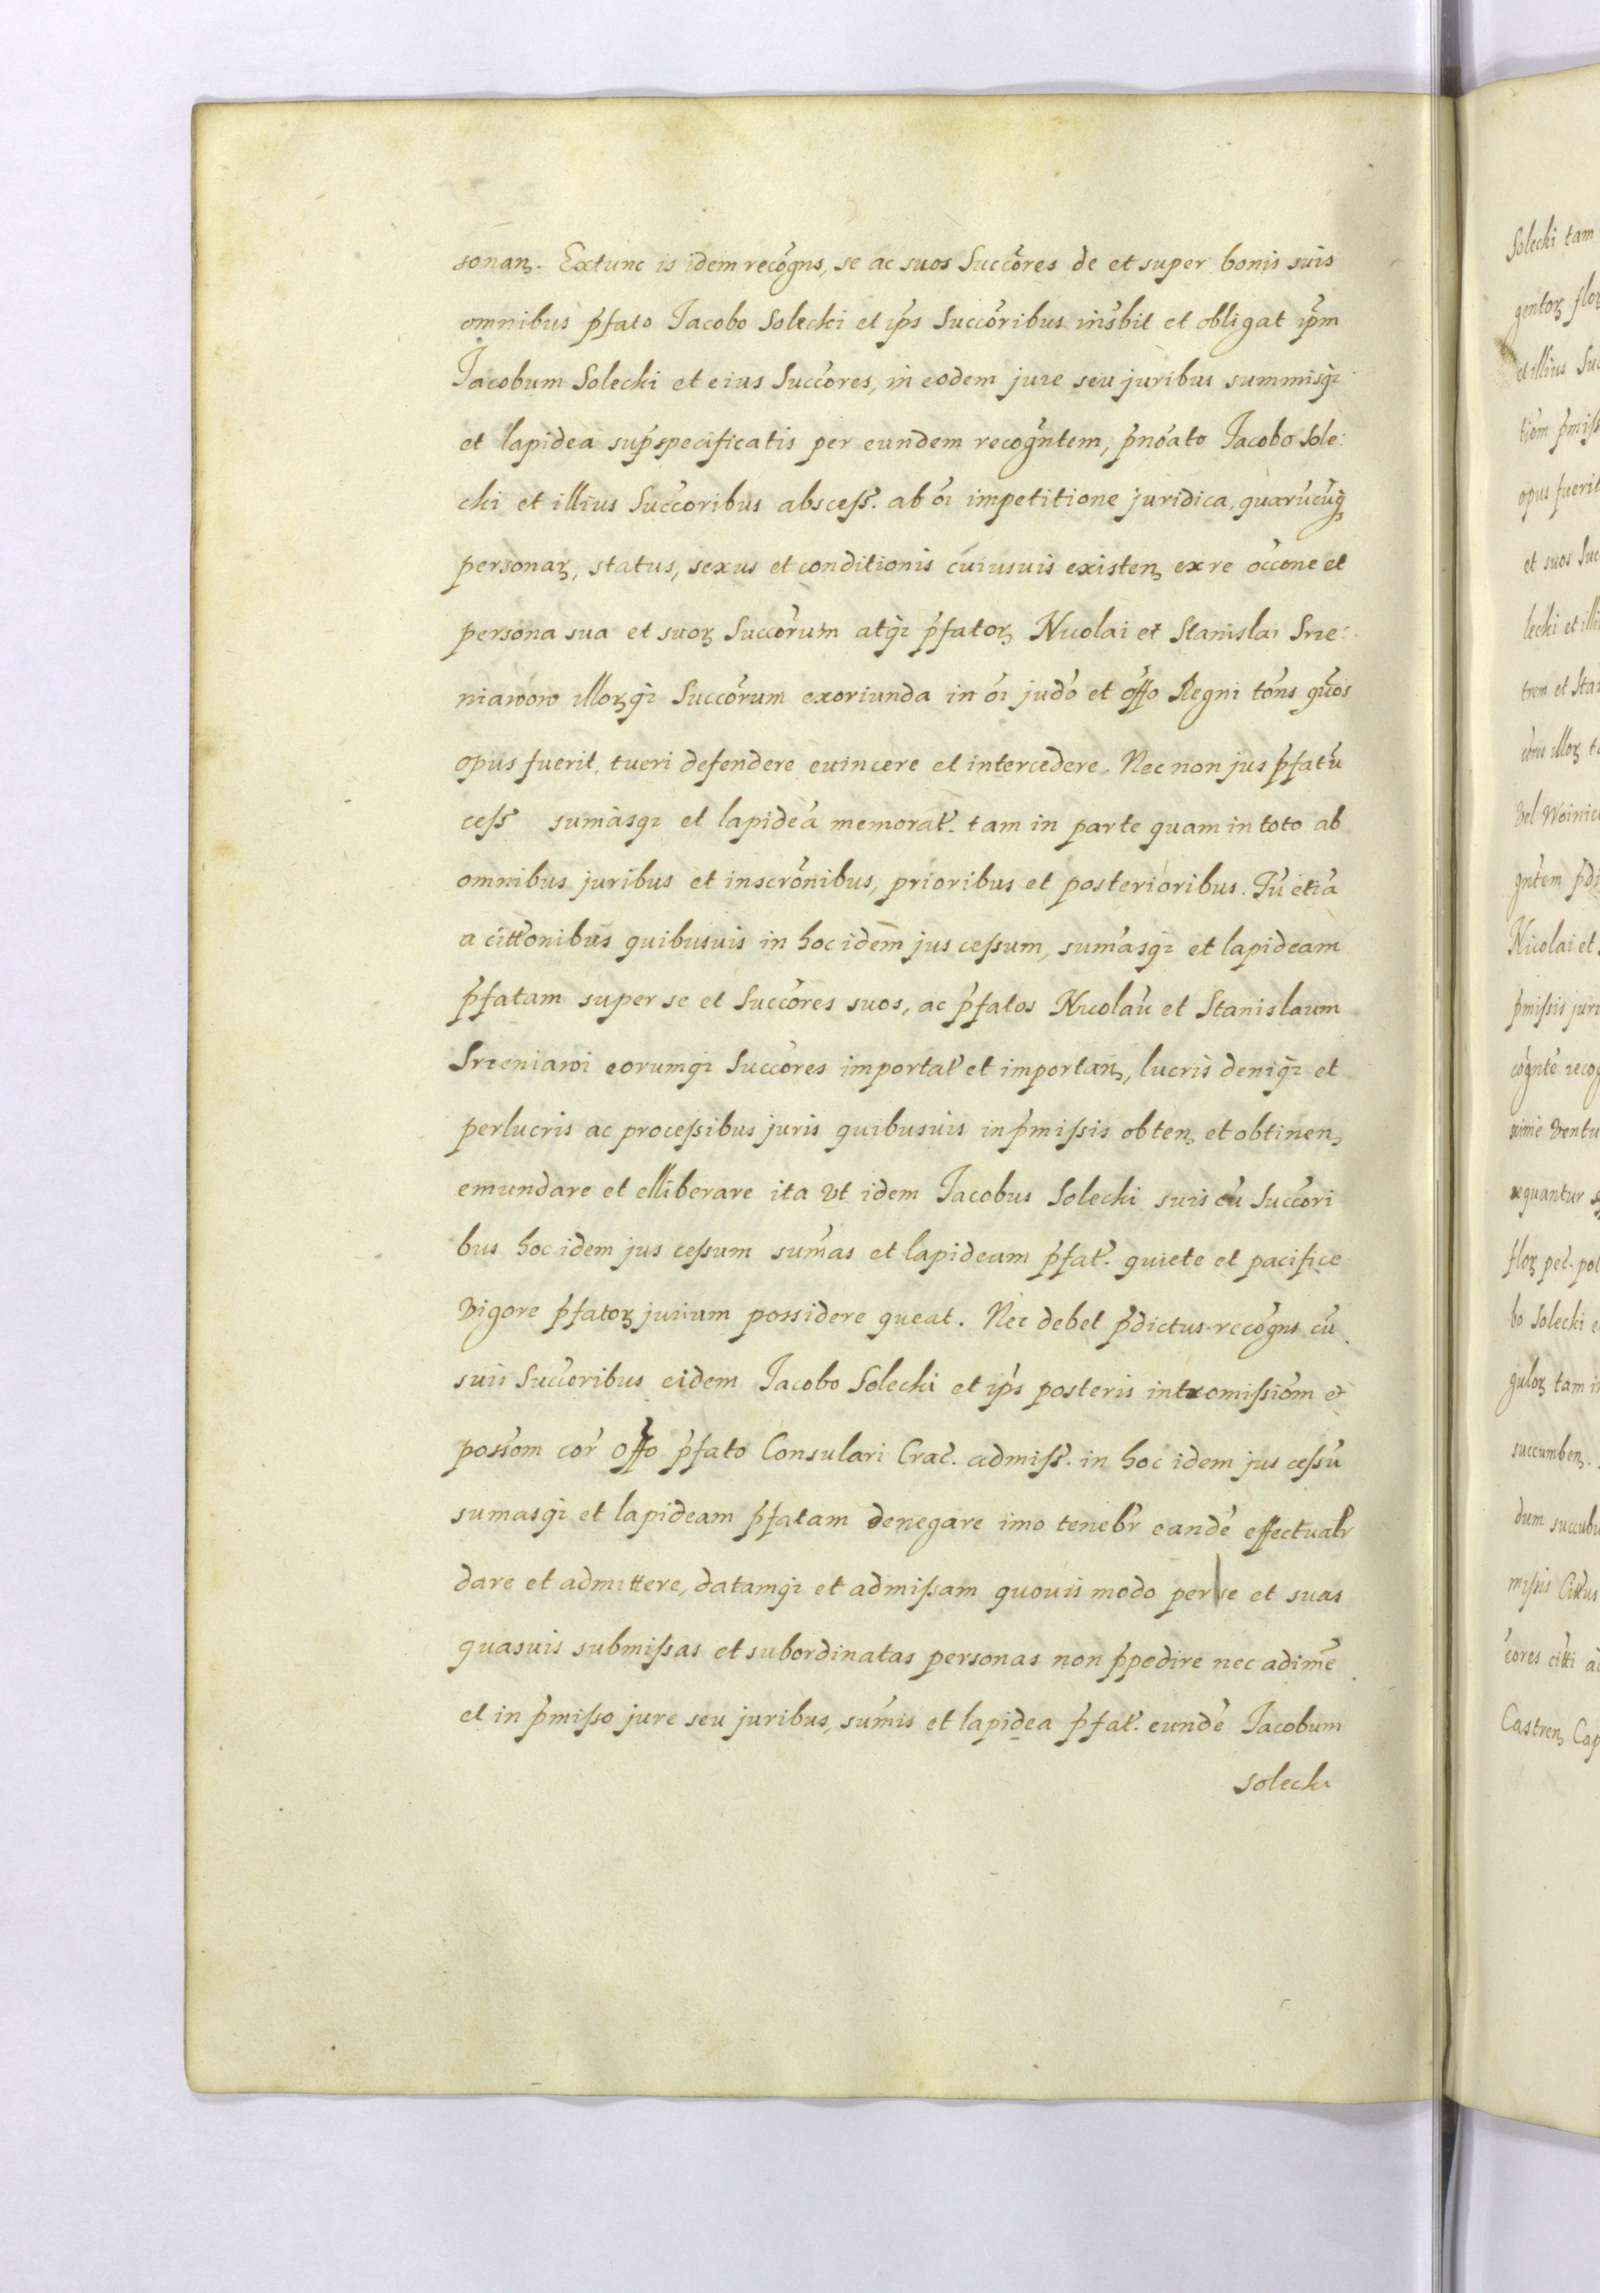 sonanꝫ. Extunc is idem recogns, se ac suos Succores de et super bonis suis
omnibus pfato Jacobo Solecki et ips Succoribus insbit et obligat ipm
Jacobum Solecki et eius Succores, in eodem jure seu juribus summisqꝫ
et lapidea supspecificatis per eundem recogntem, pnoato Jacobo Sole:
cki et illius Succoribus abscess. ab oi impetitione juridica, quarucuqꝫ
personaꝝ, status, sexus et conditionis cuiusuis existenꝫ ex re occone et
persona sua et suoꝝ Succorum atqꝫ pfatoꝝ Nicolai et Stanislai Srze:
niawow illoꝝqꝫ Succorum exoriunda in oi judo et offo Regni tons quos
opus fuerit, tueri defendere euincere et intercedere. Nec non jus pfatu
cess sumasqꝫ et lapidea memorat. tam in parte quam in toto ab
omnibus juribus et inscronibus, prioribus et posterioribus. Tu etia
a cittonibus quibusuis in hoc idem jus cessum, sumasqꝫ et lapideam
pfatam super se et Succores suos, ac pfatos Nicolau et Stanislaum
Srzeniawi eorumqꝫ Succores importat et importanꝫ, lucris deniqꝫ et
perlucris ac processibus juris quibusuis in pmissis obtenꝫ et obtinenꝫ
emundare et elliberare ita vt idem Jacobus Solecki suis cu Succori
bus hoc idem jus cessum sumas et lapideam pfat. quiete et pacifice
vigore pfatoꝝ jurium possidere queat. Nec debet pdictus recogns cu
suis Succoribus eidem Jacobo Solecki et ips posteris intromissiom et
possom cor offo pfato Consulari Crac. admiss. in hoc idem jus cessu
sumasqꝫ et lapideam pfatam denegare imo tenebr eande effectualr
dare et admittere, datamqꝫ et admissam quouis modo per se et suas
quasuis submissas et subordinatas personas non ppedire nec adime
et in pmisso jure seu juribus, sumis et lapidea pfat. eunde Jacobum
Solecki
Solecki tam
gentoꝝ floꝝ
et illius Suc
tiom pmiss
opus fuerit
et suos Suc
lecki et illi
trem et Stan
vel Woinic
gntem pdi
Nicolai et
pmissis juri
cognte recog
uime ventu
sequantur
floꝝ pec. pol
bo Solecki e
guloꝝ tam in
succumbenꝫ.
dum succubu
missis Cittus
cores citti ad
Castrenꝫ Cap